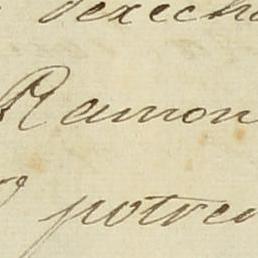 derecho
Ramon
potre